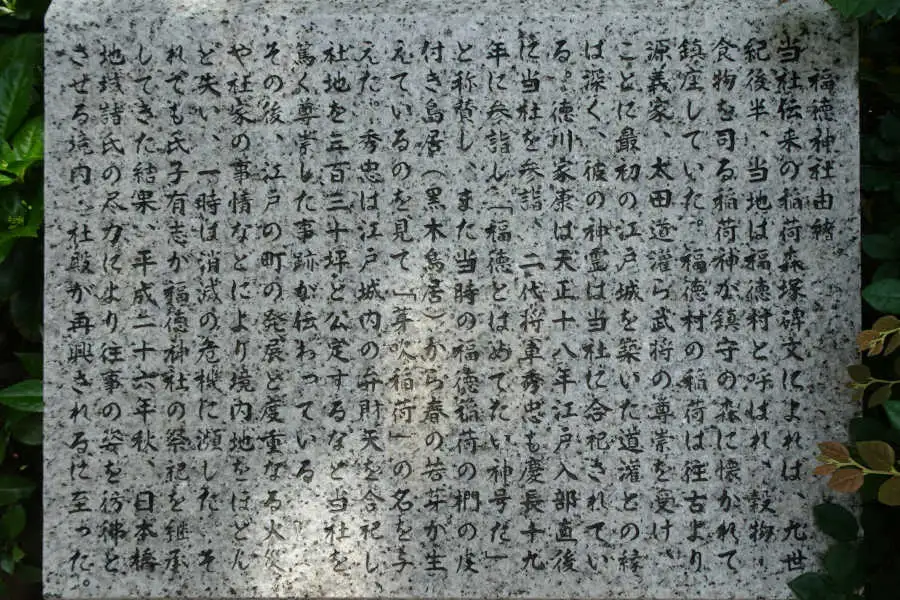 福徳神社由緒
当社伝来の稲荷森塚碑文によれば、九世
紀後半、当地は福徳村と呼ばれ、穀物・
食物を司る稲荷神が鎮守の森に懐かれて
鎮座していた。福徳村の稲荷は往古より
源義家、太田道灌ら武将の尊崇を受け、
ことに最初の江戸城を築いた道灌との縁
は深く、彼の神霊は当社に合祀されてい
る。徳川家康は天正十八年江戸入部直後
に当社を参詣、二代将軍秀忠も慶長十九
年に参詣し「福徳とはめでたい神号だ」
と称賛し、また当時の福徳稲荷の椚の皮
付き鳥居（黒木鳥居）から春の若芽が生
えているのを見て「芽吹稲荷」の名を与
えた。秀忠は江戸城内の弁財天を合祀し、
社地を三百三十坪と公定するなど当社を
篤く尊崇した事跡が伝わっている。
その後、江戸の町の発展と度重なる火災
や社家の事情などにより境内地をほとん
ど失い、一時は消滅の危機に瀕した。そ
れでも氏子有志が福徳神社の祭祀を継承
してきた結果、平成二十六年秋、日本橋
地域諸氏の尽力により往事の姿を彷彿と
させる境内、社殿が再興されるに至った。